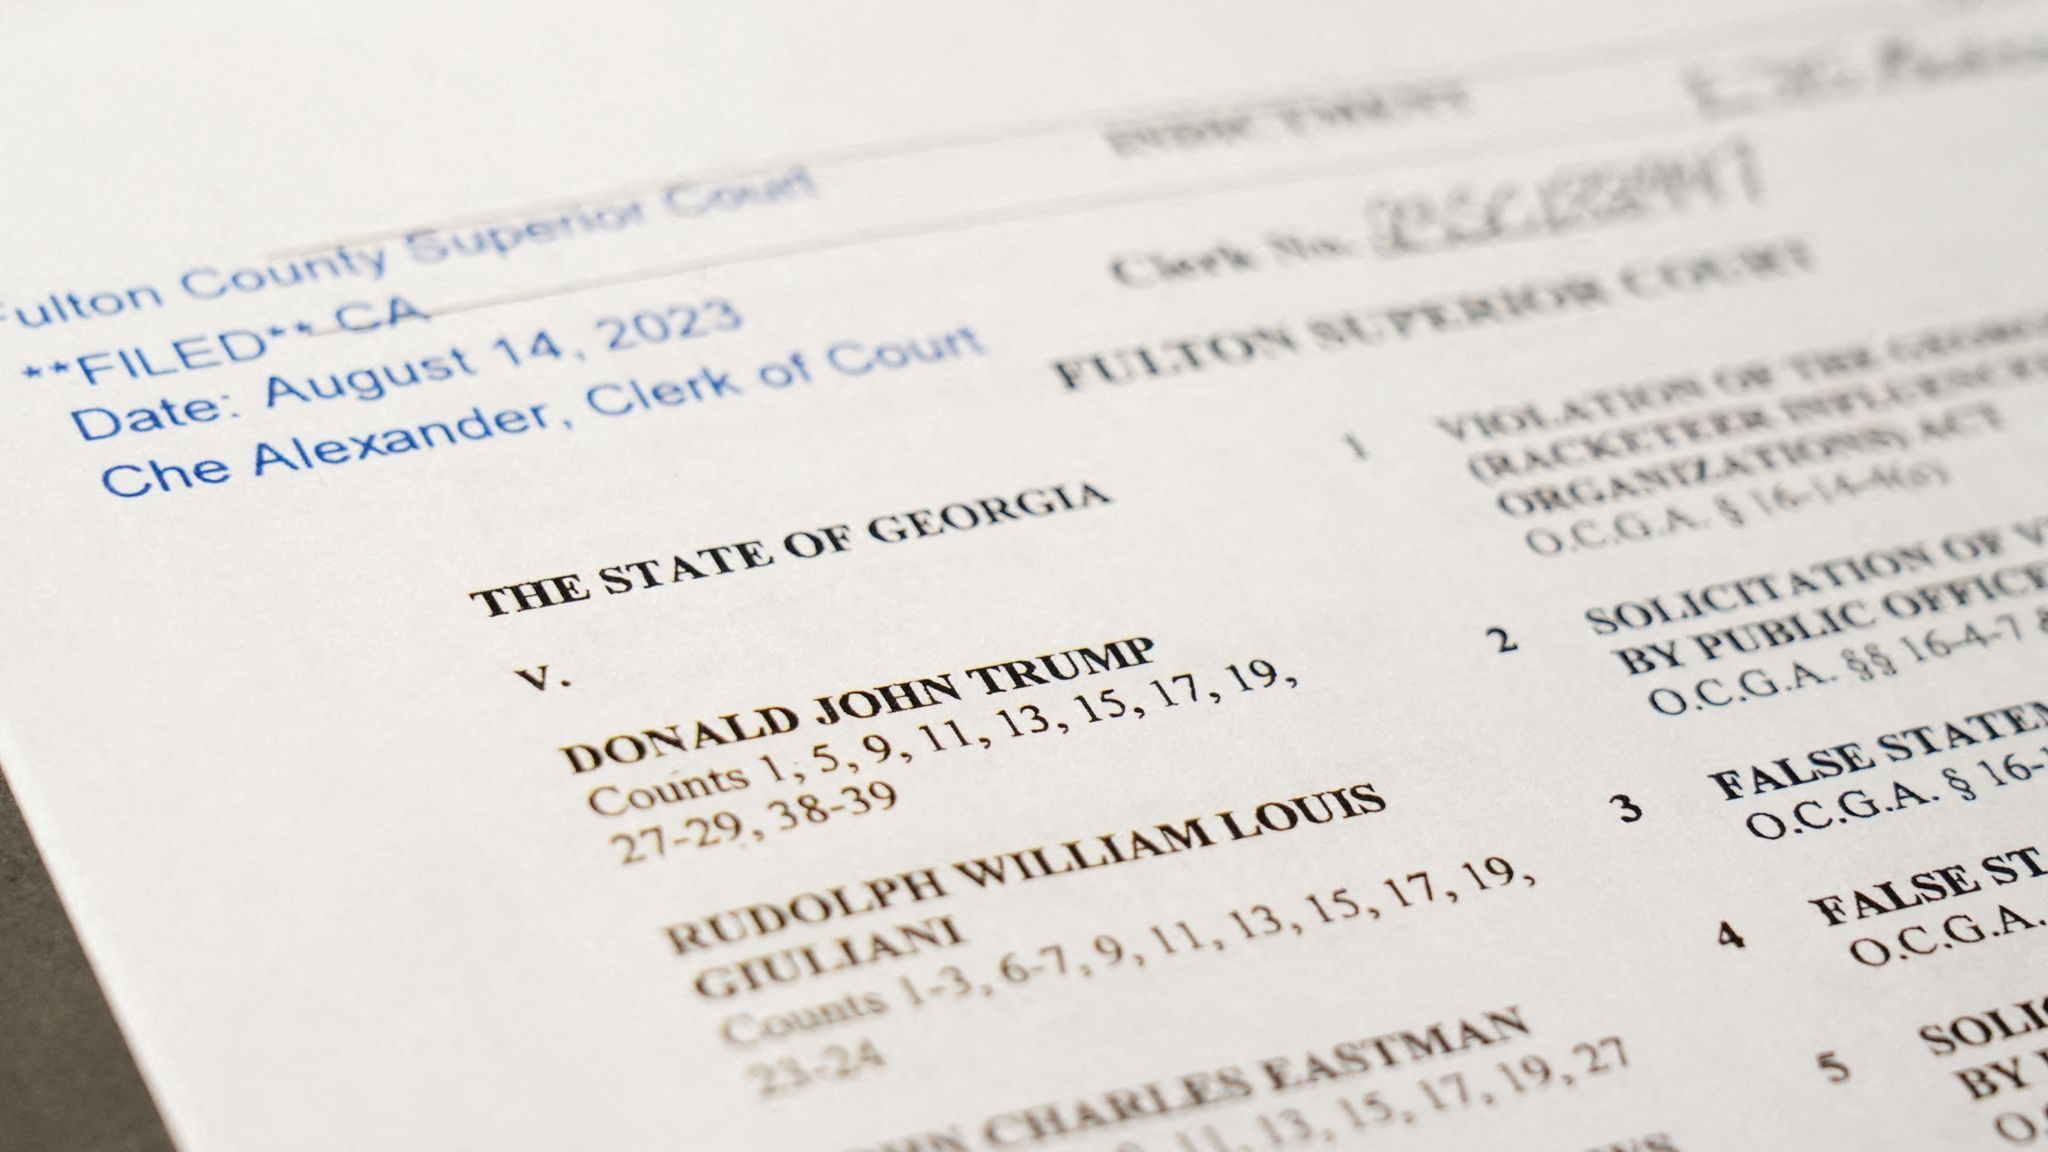 INDICTMENT
Clerk No.
Fulton County Superior Court
**FILED** CA
Date: August 14, 2023
Che Alexander, Clerk of Court
FULTON SUPERIOR COURT
THE STATE OF GEORGIA
v.
DONALD JOHN TRUMP
Counts 1, 5, 9, 11, 13, 15, 17, 19,
27-29, 38-39
RUDOLPH WILLIAM LOUIS
GIULIANI
Counts 1-3, 6-7, 9, 11, 13, 15, 17, 19,
23-24
CHARLES EASTMAN
11, 13, 15, 17, 19, 27
1 VIOLATION OF THE
(RACKETEER
ORGANIZATIONS) ACT
O.C.G.A. § 16-14-4(c)
2 SOLICITATION OF
BY PUBLIC
O.C.G.A. §§ 16-4-7 &
3 FALSE
O.C.G.A. § 16-
4 FALSE
O.C.G.A.
5
BY